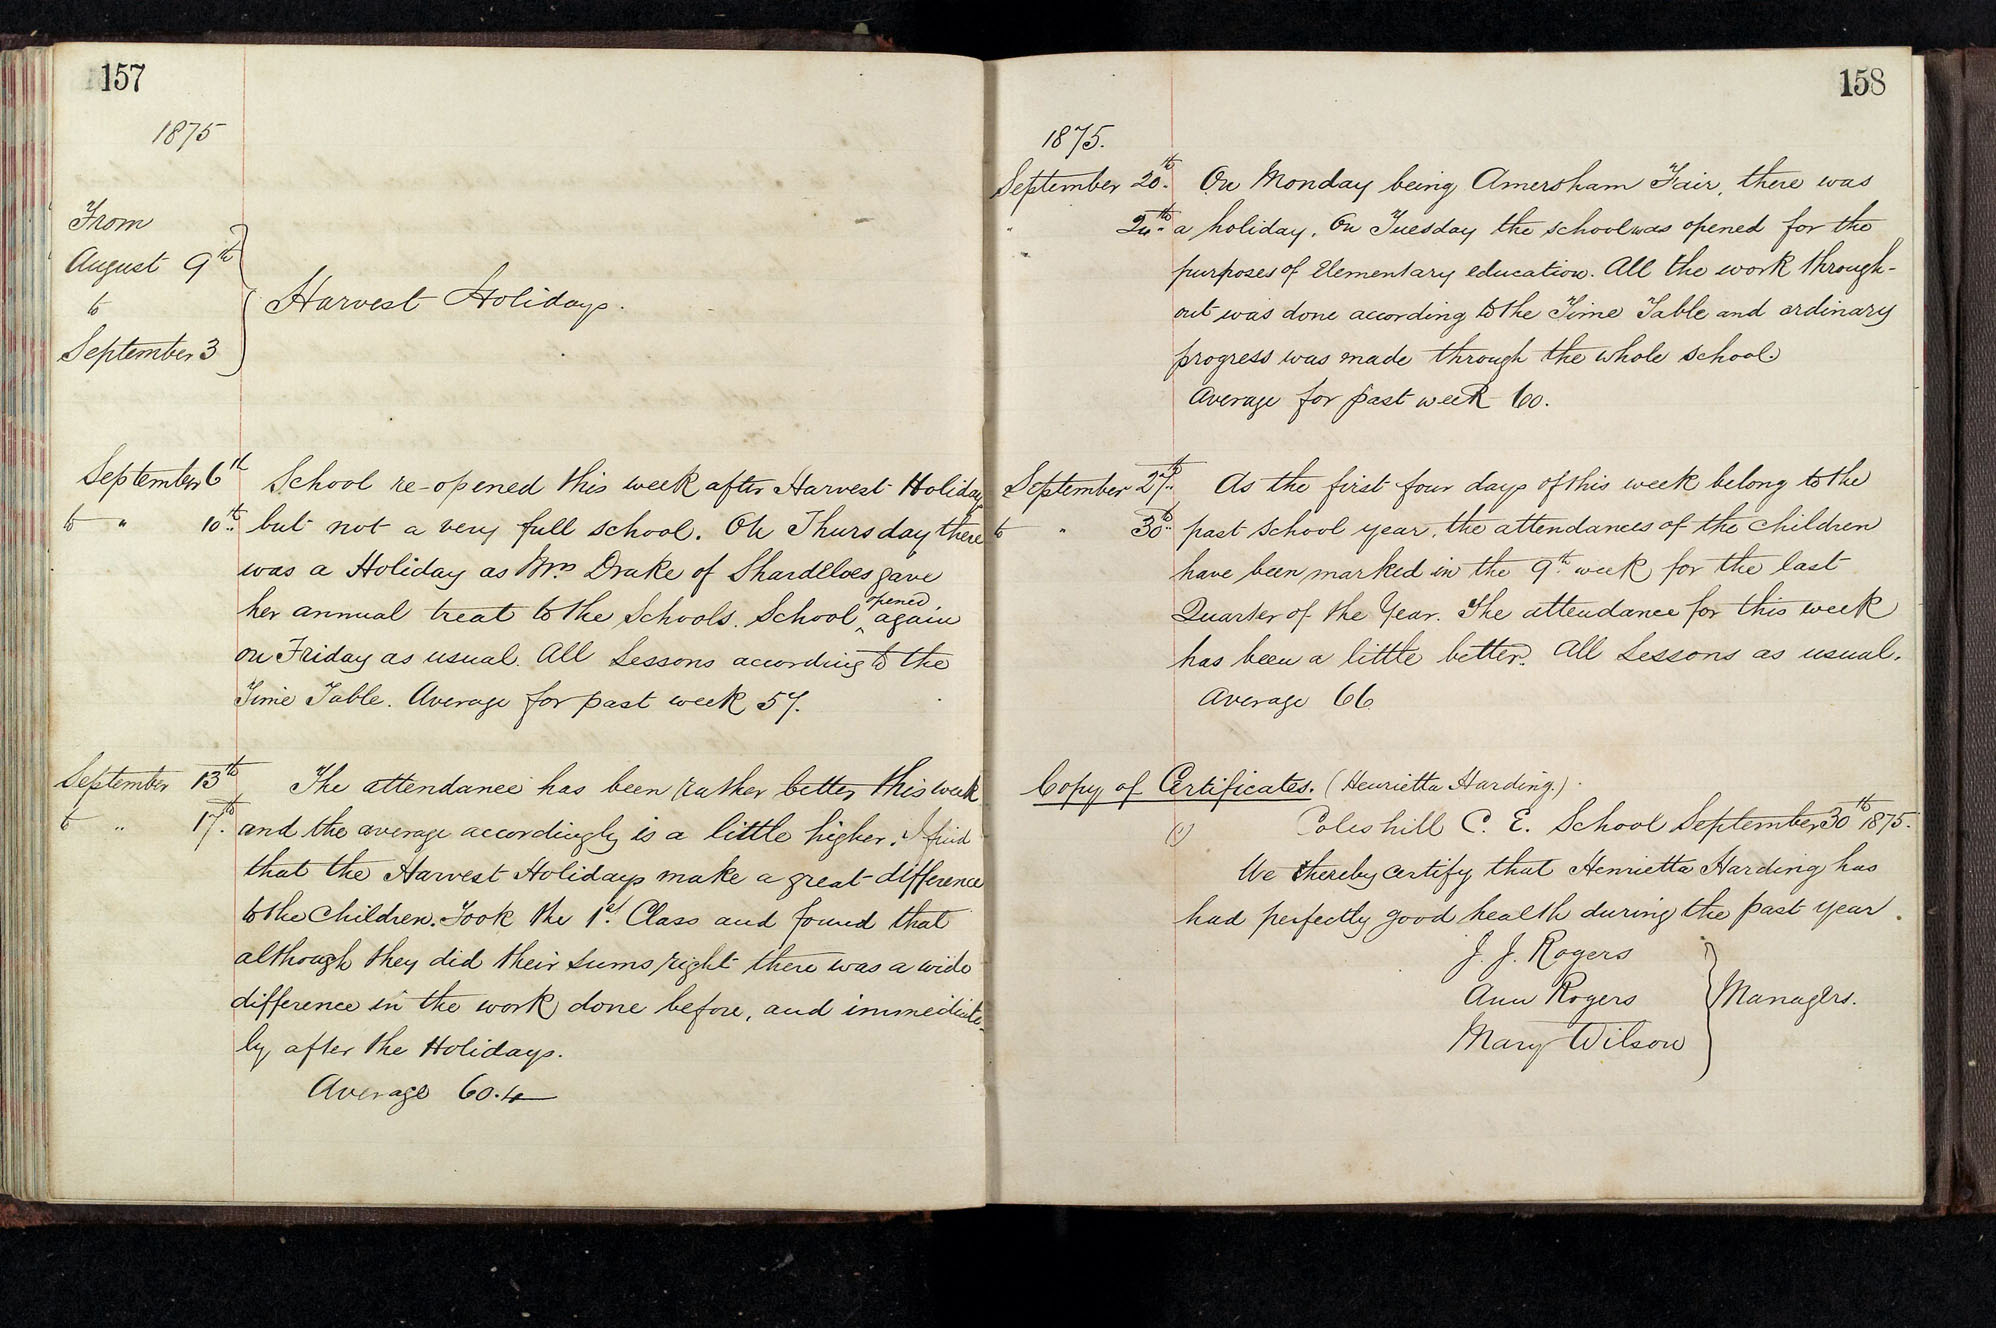 157
1875
From
August 9th
to
September 3
Harvest Holidays.
September 6th School re-opened this week after Harvest Holiday
to " 10th. but not a very full school. On Thursday there
was a Holiday as Mrs Drake of Shardeloes gave
her annual treat to the Schools. School ^opened again
on Friday as usual. All Lessons according to the
Time Table. Average for past week 57.
September 13th The attendance has been rather better this week
to " 17th. and the average accordingly is a little higher. I find
that the Harvest Holidays make a great difference
to the Children. Took the 1st Class and found that
although they did their sums right there was a wide
difference in the work done before, and immediate-
ly after the Holidays.
Average 60.4
158
1875.
September 20th. On Monday being Amersham Fair, there was
" 24th. a holiday. On Tuesday the school was opened for the
purposes of Elementary education. All the work through-
out was done according to the Time Table and ordinary
progress was made through the whole school.
Average for past week 60.
September 27th. As the first four days of this week belong to the
to " 30th. past school year, the attendances of the children
have been marked in the 9th. week for the last
Quarter of the Year. The attendance for this week
has been a little better. All Lessons as usual.
Average 66
Copy of Certificates. (Henrietta Harding.)
(1) Coleshill C. E. School September 30th 1875.
We hereby certify that Henrietta Harding has
had perfectly good health during the past year.
J. J. Rogers
Ann Rogers
Managers.
Mary Wilson